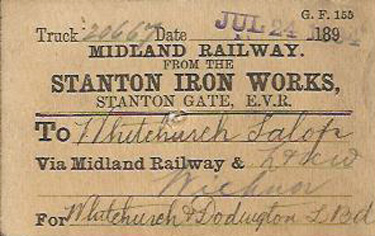 G. F. 155
Truck 20667 Date JUL 24 1894
MIDLAND RAILWAY.
FROM THE
STANTON IRON WORKS,
STANTON GATE, E.V.R.
To Whitchurch Salop
Via Midland Railway & L & N W
Wichnor
For Whitchurch & Dodington L Bd